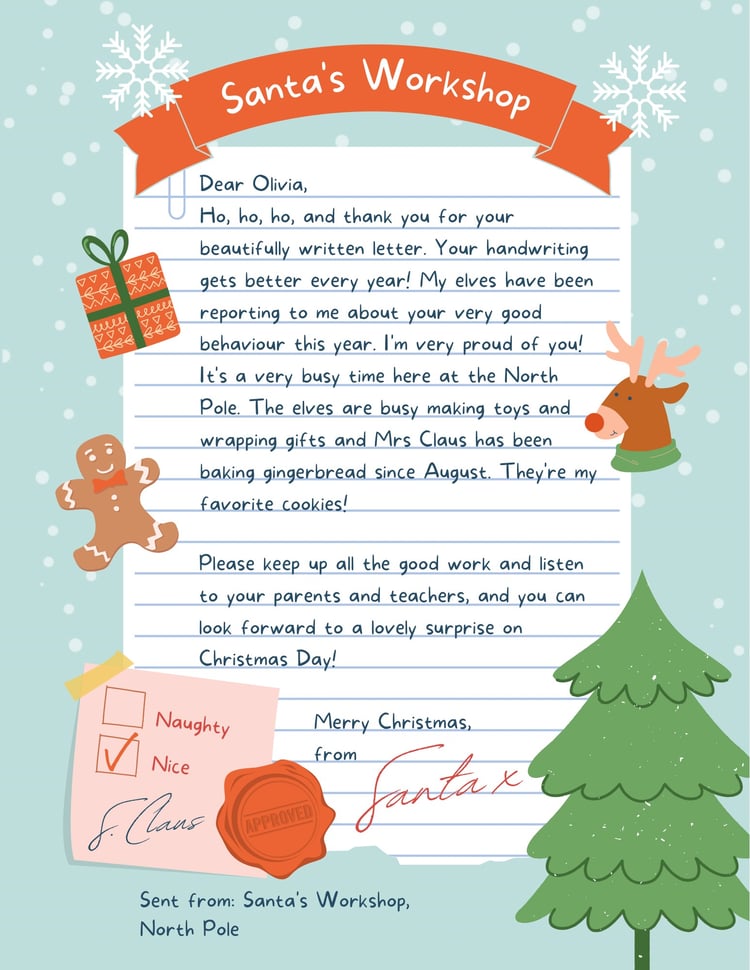 Santa's Workshop
Dear Olivia,
Ho, ho, ho, and thank you for your
beautifully written letter. Your handwriting
gets better every year! My elves have been
reporting to me about your very good
behaviour this year. I'm very proud of you!
It's a very busy time here at the North
Pole. The elves are busy making toys and
wrapping gifts and Mrs Claus has been
baking gingerbread since August. They're my
favorite cookies!
Please keep up all the good work and listen
to your parents and teachers, and you can
look forward to a lovely surprise on
Christmas Day!
Merry Christmas,
from
Santa x
Naughty
Nice
S. Claus
APPROVED
Sent from: Santa's Workshop,
North Pole